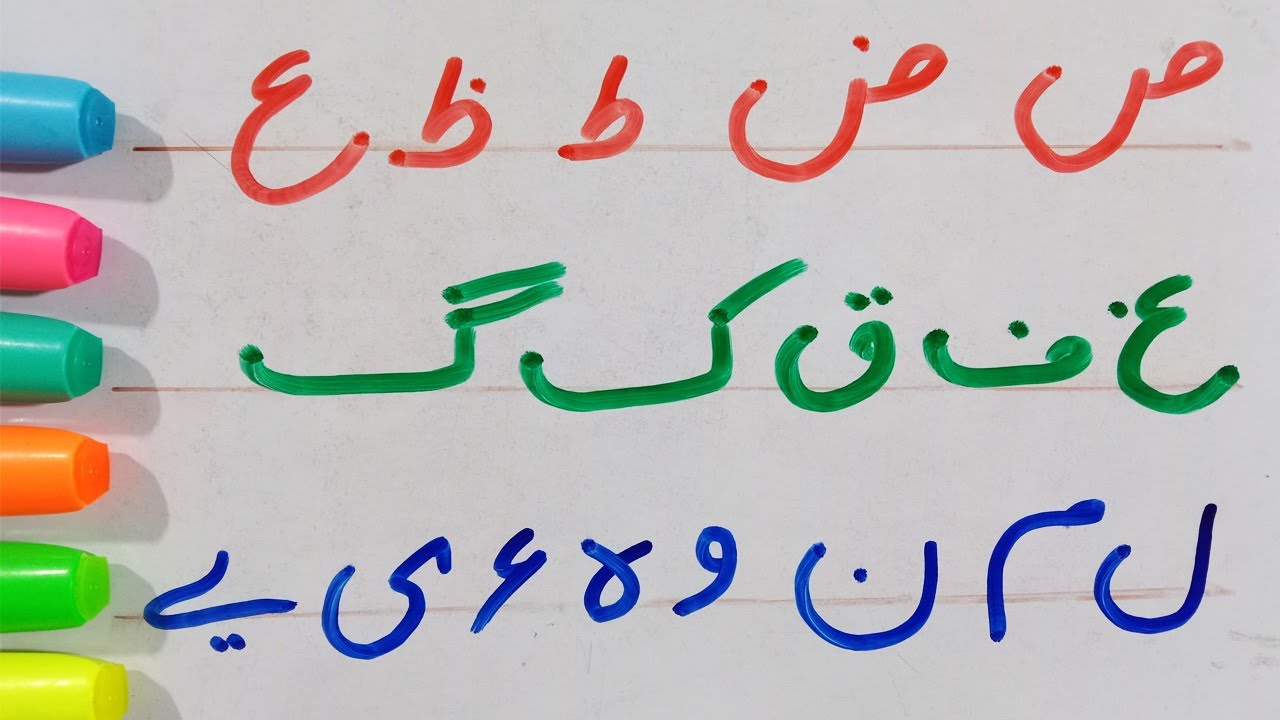 ص ض ط ظ ع
غ ف ق ک گ
ل م ن و ہ ء ی ے